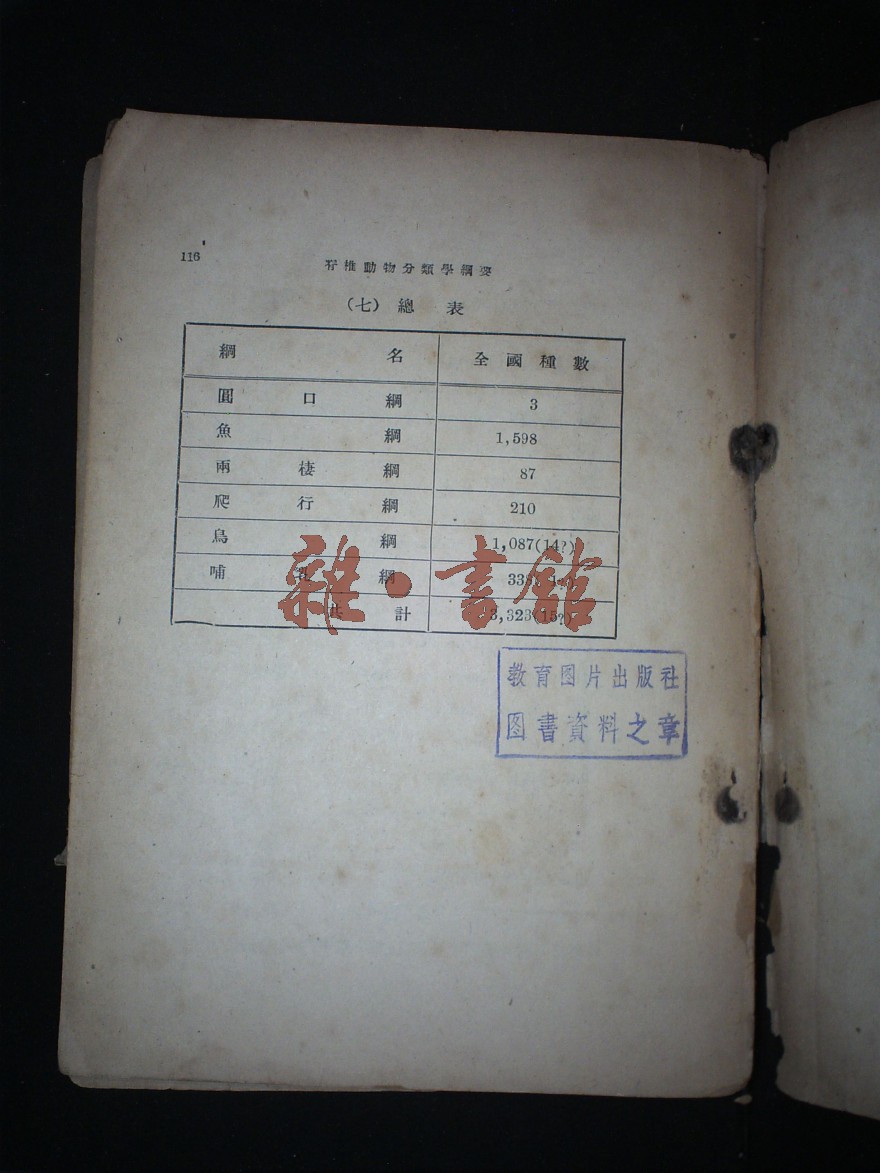 116
脊椎動物分類學綱要
(七) 總 表
綱 名 全 國 種 數
圓 口 綱 3
魚 綱 1,598
兩 棲 綱 87
爬 行 綱 210
鳥 綱 1,087(14?)
哺 乳 綱 338(1?)
共 計 3,323(15?)
雜·書館
教育图片出版社
图書資料之章